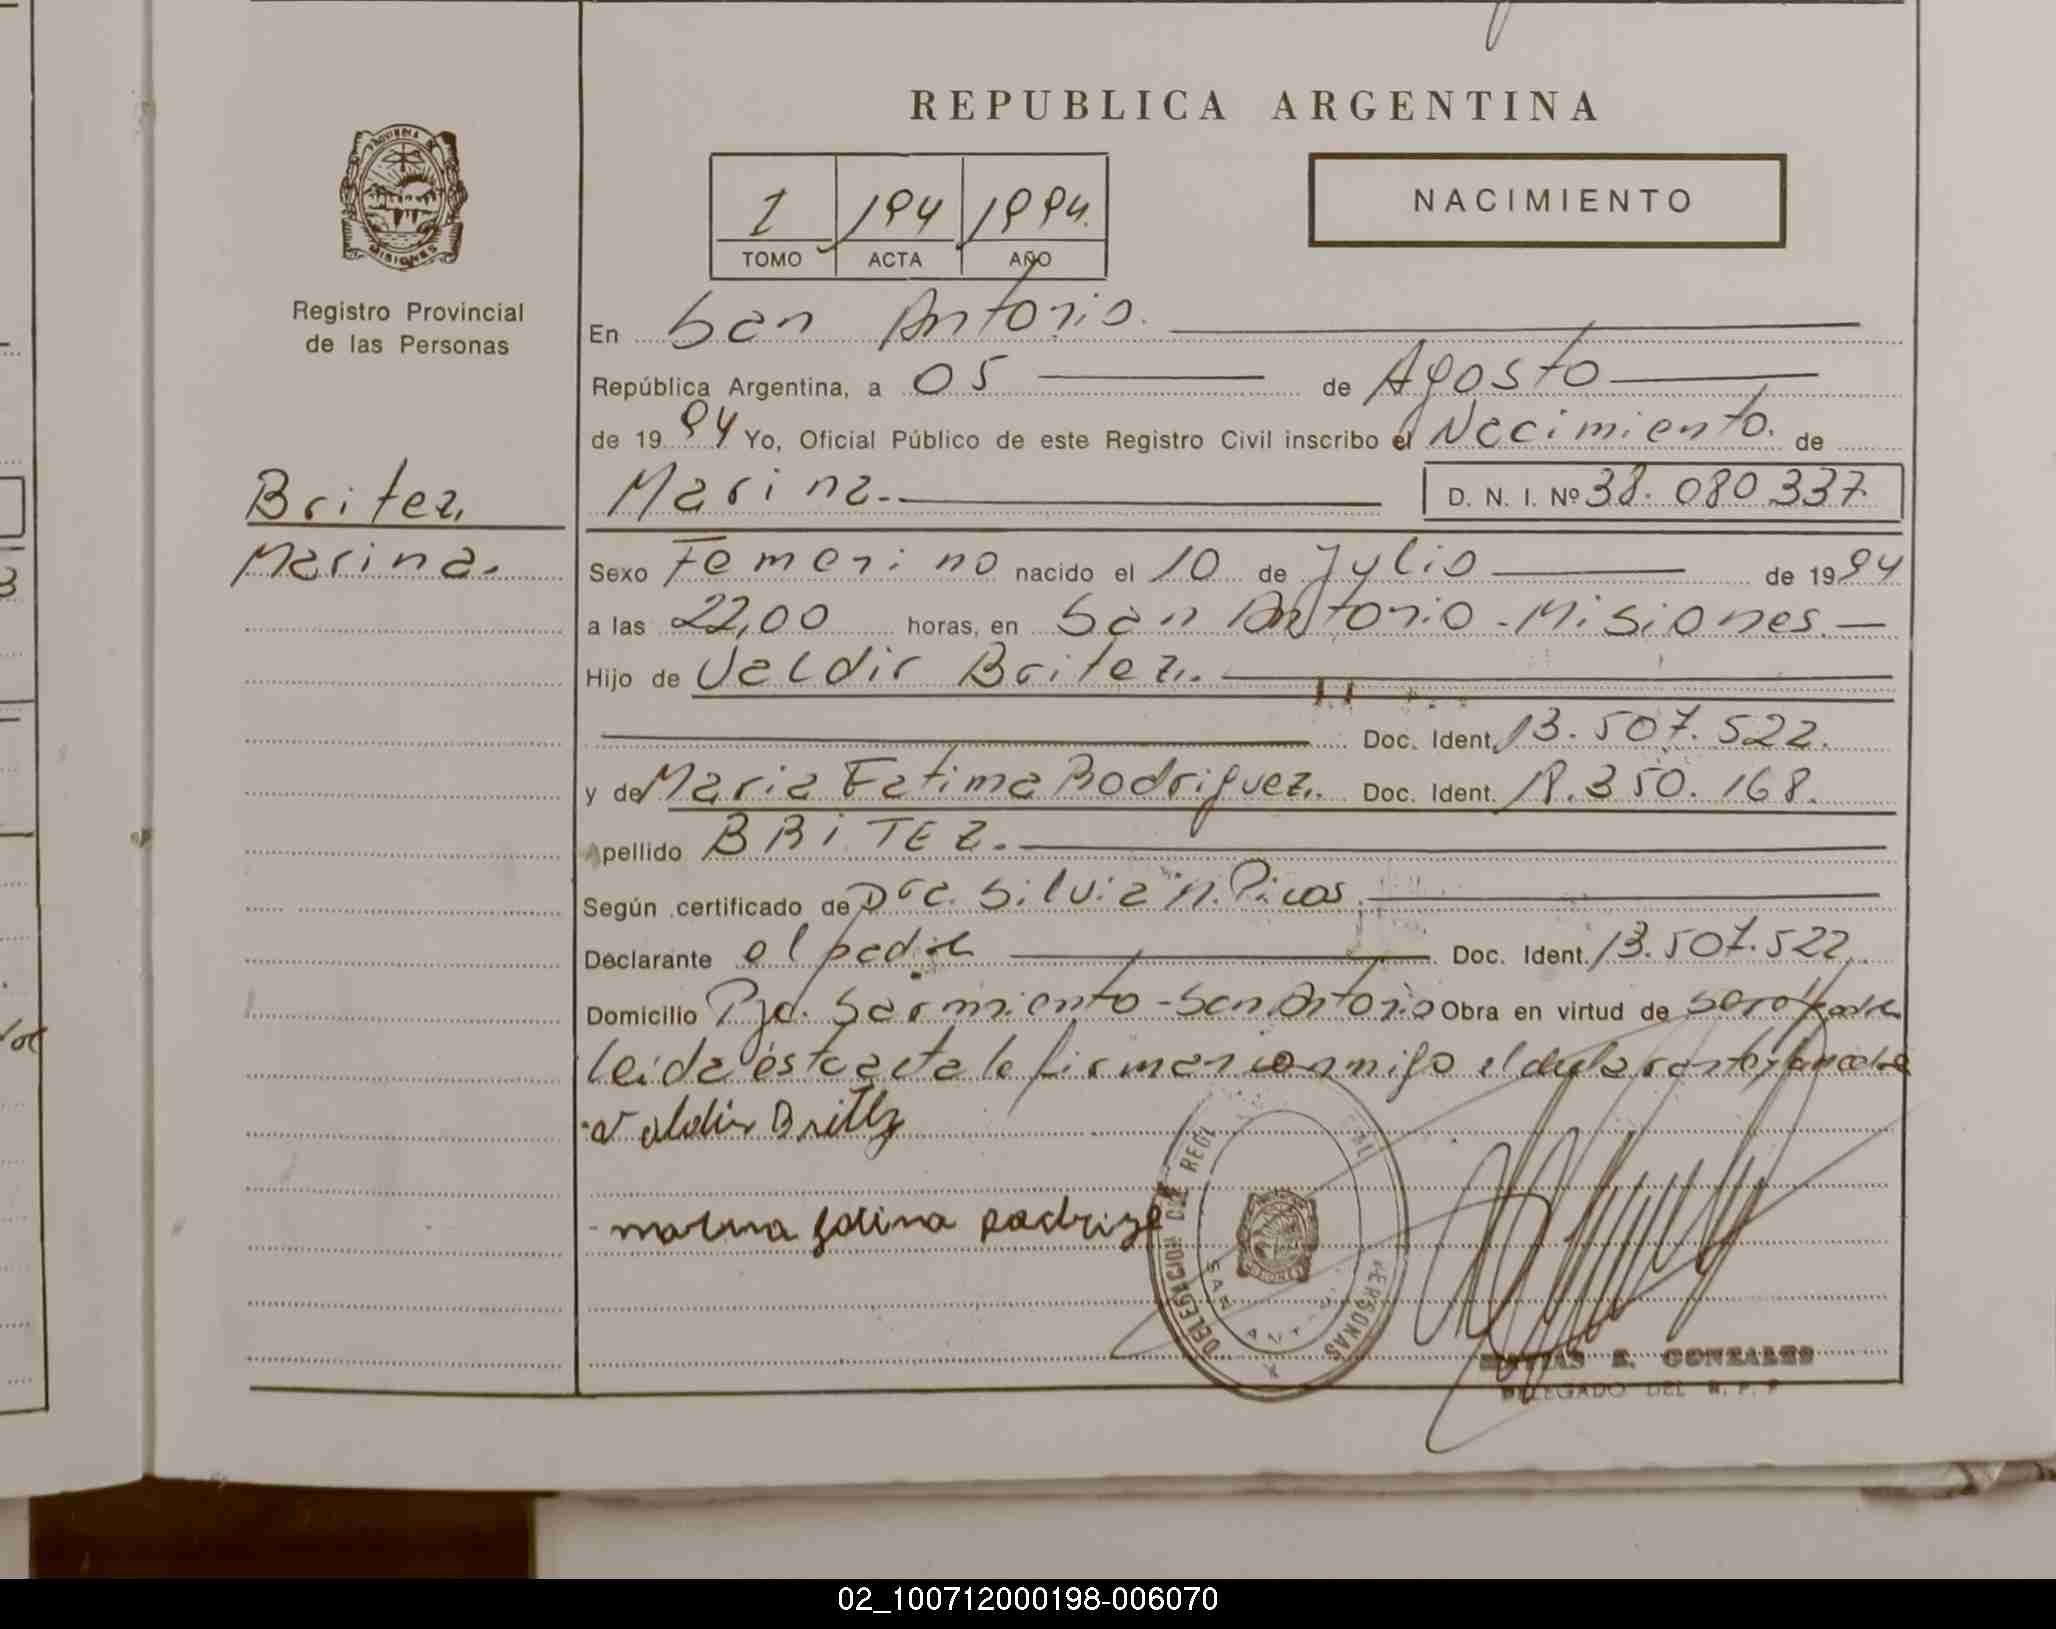 REPUBLICA ARGENTINA
1 194 1994.
TOMO ACTA AÑO
NACIMIENTO
PROVINCIA DE
MISIONES
Registro Provincial
de las Personas
Britez,
Marina.
En San Antonio.
República Argentina, a 05 de Agosto
de 1994 Yo, Oficial Público de este Registro Civil inscribo el Nacimiento. de
Marina.- D. N. I. Nº 38.080.337
Sexo Femenino nacido el 10 de Julio de 1994
a las 22,00 horas, en San Antonio - Misiones.-
Hijo de Valdir Britez.
Doc. Ident. 13.507.522.
y de Maria Fatima Rodriguez. Doc. Ident. 18.350.168.
Apellido BRiTEZ.
Según certificado de Dra. Silvia N. Picos.
Declarante el padre Doc. Ident. 13.507.522.
Domicilio Pje. Sarmiento - San Antonio Obra en virtud de ser el padre
leida ésta acta la firman conmigo el declarante y la madre
Valdir Britez
DELEGACION DEL REGI PERSONAS
SAN ANT
MATIAS E. GONZALES
DELEGADO DEL R. P. P
02_100712000198-006070